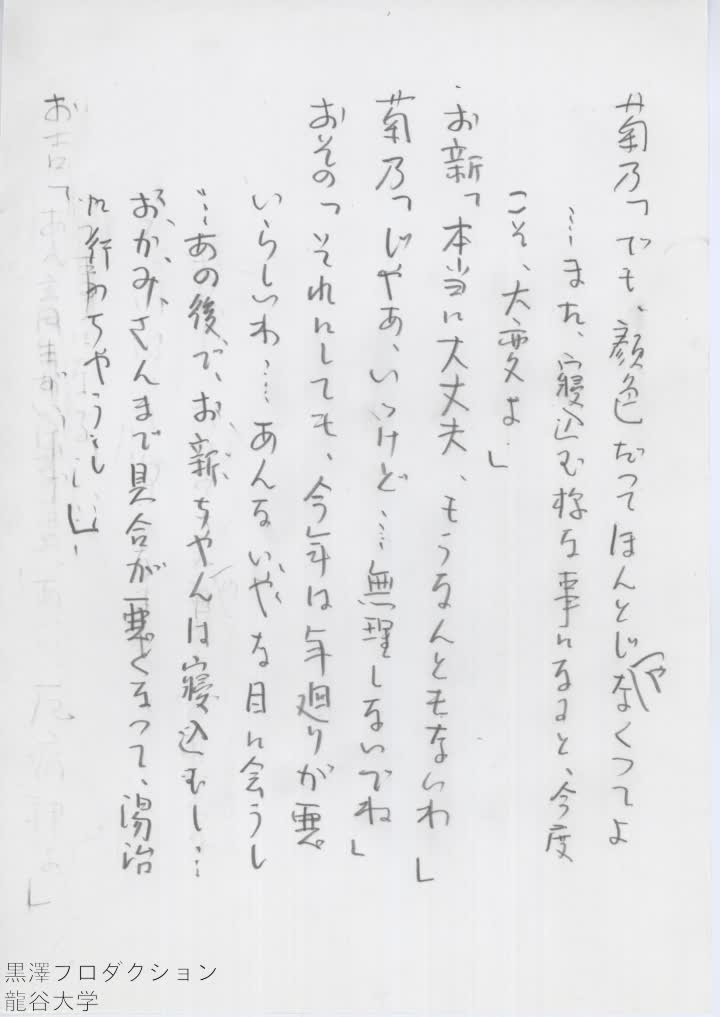 菊乃「でも、顔色だってほんとじゃなくってよ
…また、寝込む様な事になると、今度
こそ、大変よ」
お新「本当に大丈夫、もうなんともないわ」
菊乃「じゃあ、いゝけど…無理しないでね」
おその「それにしても、今年は年廻りが悪
いらしいわ…あんないやな目に会うし
…あの後で、お新ちゃんは寝込むし…
おかみさんまで具合が悪くなって、湯治
に行っちゃうし…」
お吉「
黒澤プロダクション
龍谷大学